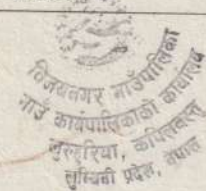 विजयनगर गाउँपालिका
गाउँ कार्यपालिकाको कार्यालय
खुरुहुरिया, कपिलवस्तु
लुम्बिनी प्रदेश, नेपाल